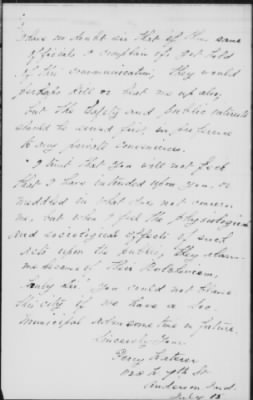 I have no doubt sir that if the same
officials I complain of, get hold
of this communication, they would
perhaps kill or beat me up also,
but the Safety and public interests
should be served first, in preference
to my private convenience.
I trust that you will not feel
that I have intruded upon you, or
meddled in what does not concern
me, but when I feel the physiological
and sociological effects of such
acts upon the public, they alarm
me because of their Bolshevism.
Surely Sir, You could not blame
this city if we have a Soc.
municipal
in future.
Sincerely Yours
Percy
9th St
Anderson Ind.
July 18